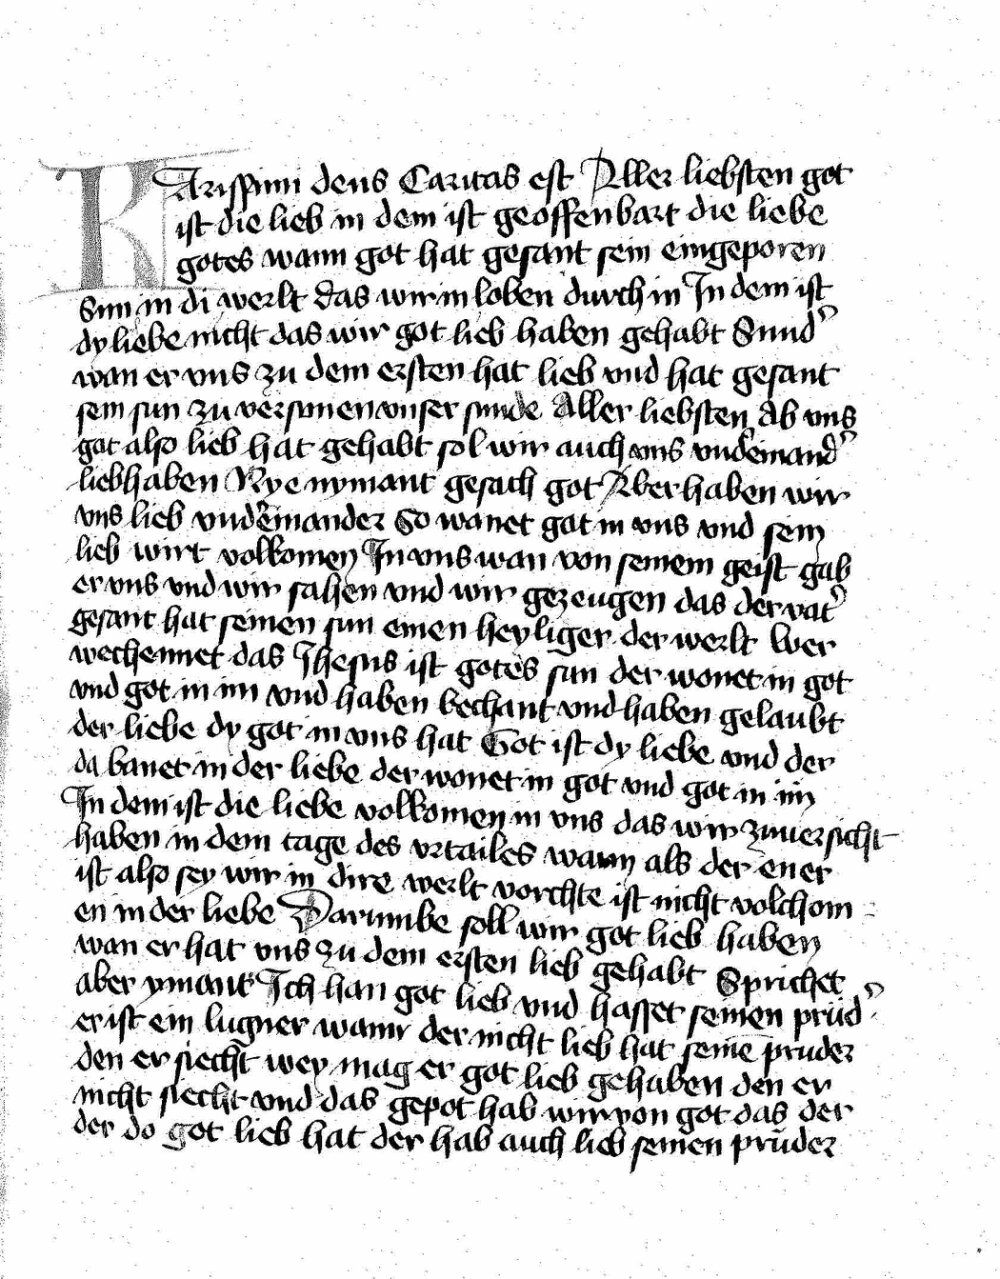 KArissimi deus Caritas est Aller liebsten got
ist die lieb in dem ist geoffenbart die liebe
gotes wann got hat gesant sein eingeporen
Sun in di werlt das wir in loben durch in In dem ist
dy liebe nicht das wir got lieb haben gehabt Sund'
wan er vns zu dem ersten hat lieb vnd hat gesant
sein sun zu versunen vnser sunde Aller liebsten Ab vns
got also lieb hat gehabt sol wir auch vns vndereinand'
liebhaben Nye nymant gesach got Aber haben wir
vns lieb vndereinander So wanet got in vns vnd sein
lieb wirt volkomen In vns wan von seinem geist gab
er vns vnd wir sahen vnd wir gezeugen das der vat'
gesant hat seinen sun einen heyliger der werlt Wer
wechennet das Ihesus ist gotes sun der wonet in got
vnd got in im vnd haben bechant vnd haben gelaubt
der liebe dy got in vns hat Got ist dy liebe vnd der
da banet in der liebe der wonet in got vnd got in im
In dem ist die liebe volkomen in vns das wir zuuersicht
haben in dem tage des vrtailes wann als der ener
ist also sey wir in dire werlt vorchte ist nicht volchom
en in der liebe Darumbe soll wir got lieb haben
wan er hat vns zu dem ersten lieb gehabt Sprichet
aber ymant Ich han got lieb vnd hasset seinen prüd'
er ist ein lugner wann der nicht lieb hat seinē pruder
den er siecht wey mag er got lieb gehaben den er
nicht siecht vnd das gepot hab wir von got das der
der do got lieb hat der hab auch lieb seinen prüder